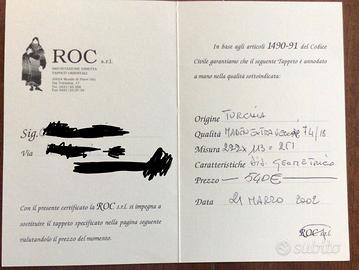 ROC s.r.l.
IMPORTAZIONE DIRETTA
TAPPETI ORIENTALI
Sig.
Via
Con il presente certificato la ROC s.r.l. si impegna a
sostituire il tappeto specificato nella pagina seguente
valutandolo il prezzo del momento.
In base agli articoli 1490-91 del Codice
Civile garantiamo che il seguente Tappeto è annodato
a mano nella qualità sottoindicata:
Origine TURCHIA
Qualità EXTRA
Misura 113 = 251
Caratteristiche dis. GEOMETRICO
Prezzo 540€
Data 21 MARZO 2002
ROC s.r.l.
subito